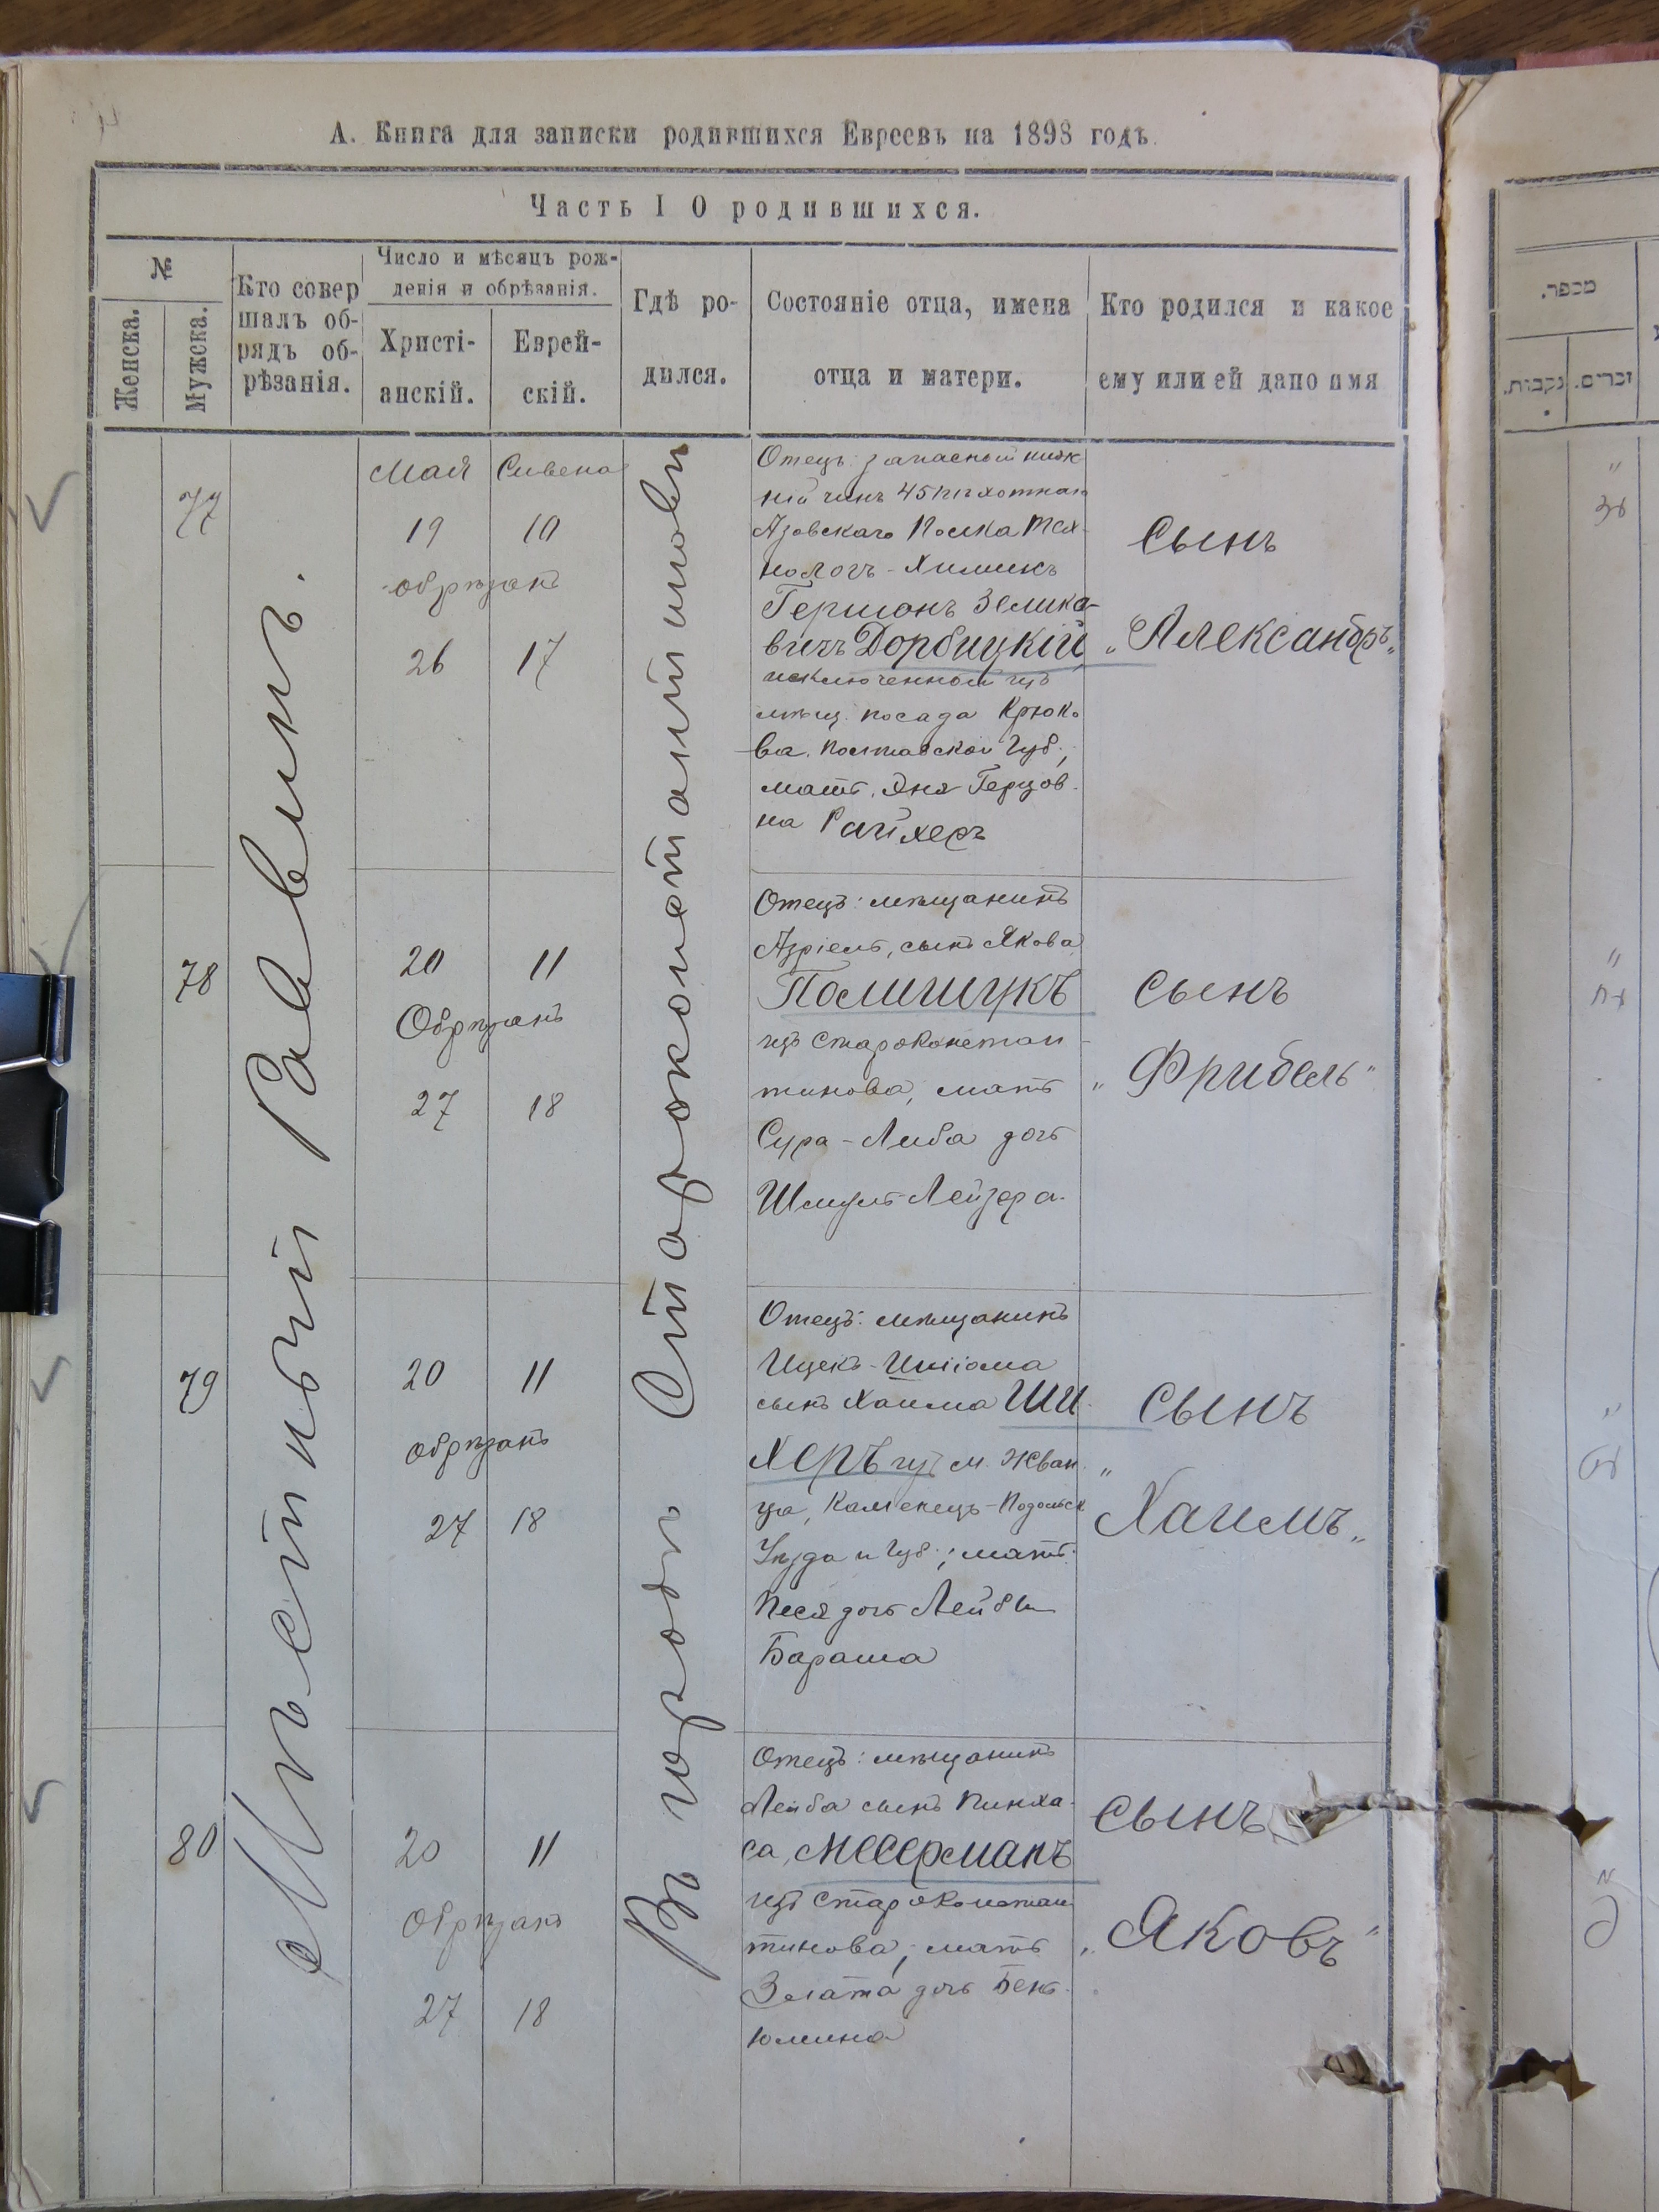 А. Книга для записки родившихся Евреевъ на 1898 годъ.
Часть I О родившихся.
№
Женска.
Мужска.
Кто совер
шалъ об-
рядъ об-
рѣзанія.
Число и мѣсяцъ рож-
денія и обрѣзанія.
Христі-
анскій.
Еврей-
скій.
Гдѣ ро-
дился.
Состояніе отца, имена
отца и матери.
Кто родился и какое
ему или ей дано имя
Мѣстный Равинъ.
Въ городѣ Староконстантиновѣ
77
Мая Сивена
19 10
обрѣзанъ
26 17
Отецъ: запасной ниж
ній чинъ 45 пѣхотнаго
Азовскаго Полка Тех-
нологъ-Химикъ
Германъ Зелико-
вичъ Дорбицкій
исключенной изъ
мѣщ. посада Крюко
ва. Полтавской Губ.;
мать, Эня Герцов-
на Райхеръ
Сынъ
„Александръ„
78
20 11
Обрѣзанъ
27 18
Отецъ: мѣщанинъ
Азріель, сынъ Якова
Полищукъ
изъ Староконстан-
тинова, мать
Сура-Либа дочь
Шмуль-Лейзера.
Сынъ
„Фрибель"
79
20 11
обрѣзанъ
27 18
Отецъ: мѣщанинъ
Ицекъ-
сынъ Хаима Ши-
херъ изъ м. Жван-
ца, Каменецъ-Подольск
Уѣзда и Губ.; мать:
Песя дочь Лейбы
Бараша
Сынъ
„Хаимъ„
80
20 11
Обрѣзанъ
27 18
Отецъ: мѣщанинъ
Лейба сынъ Пинха-
са, Месерманъ
изъ Староконстан
тинова; мать
Злата дочь Бень-
юмина
Сынъ
„Яковъ"
מספר.
נקבות.
זכרים.